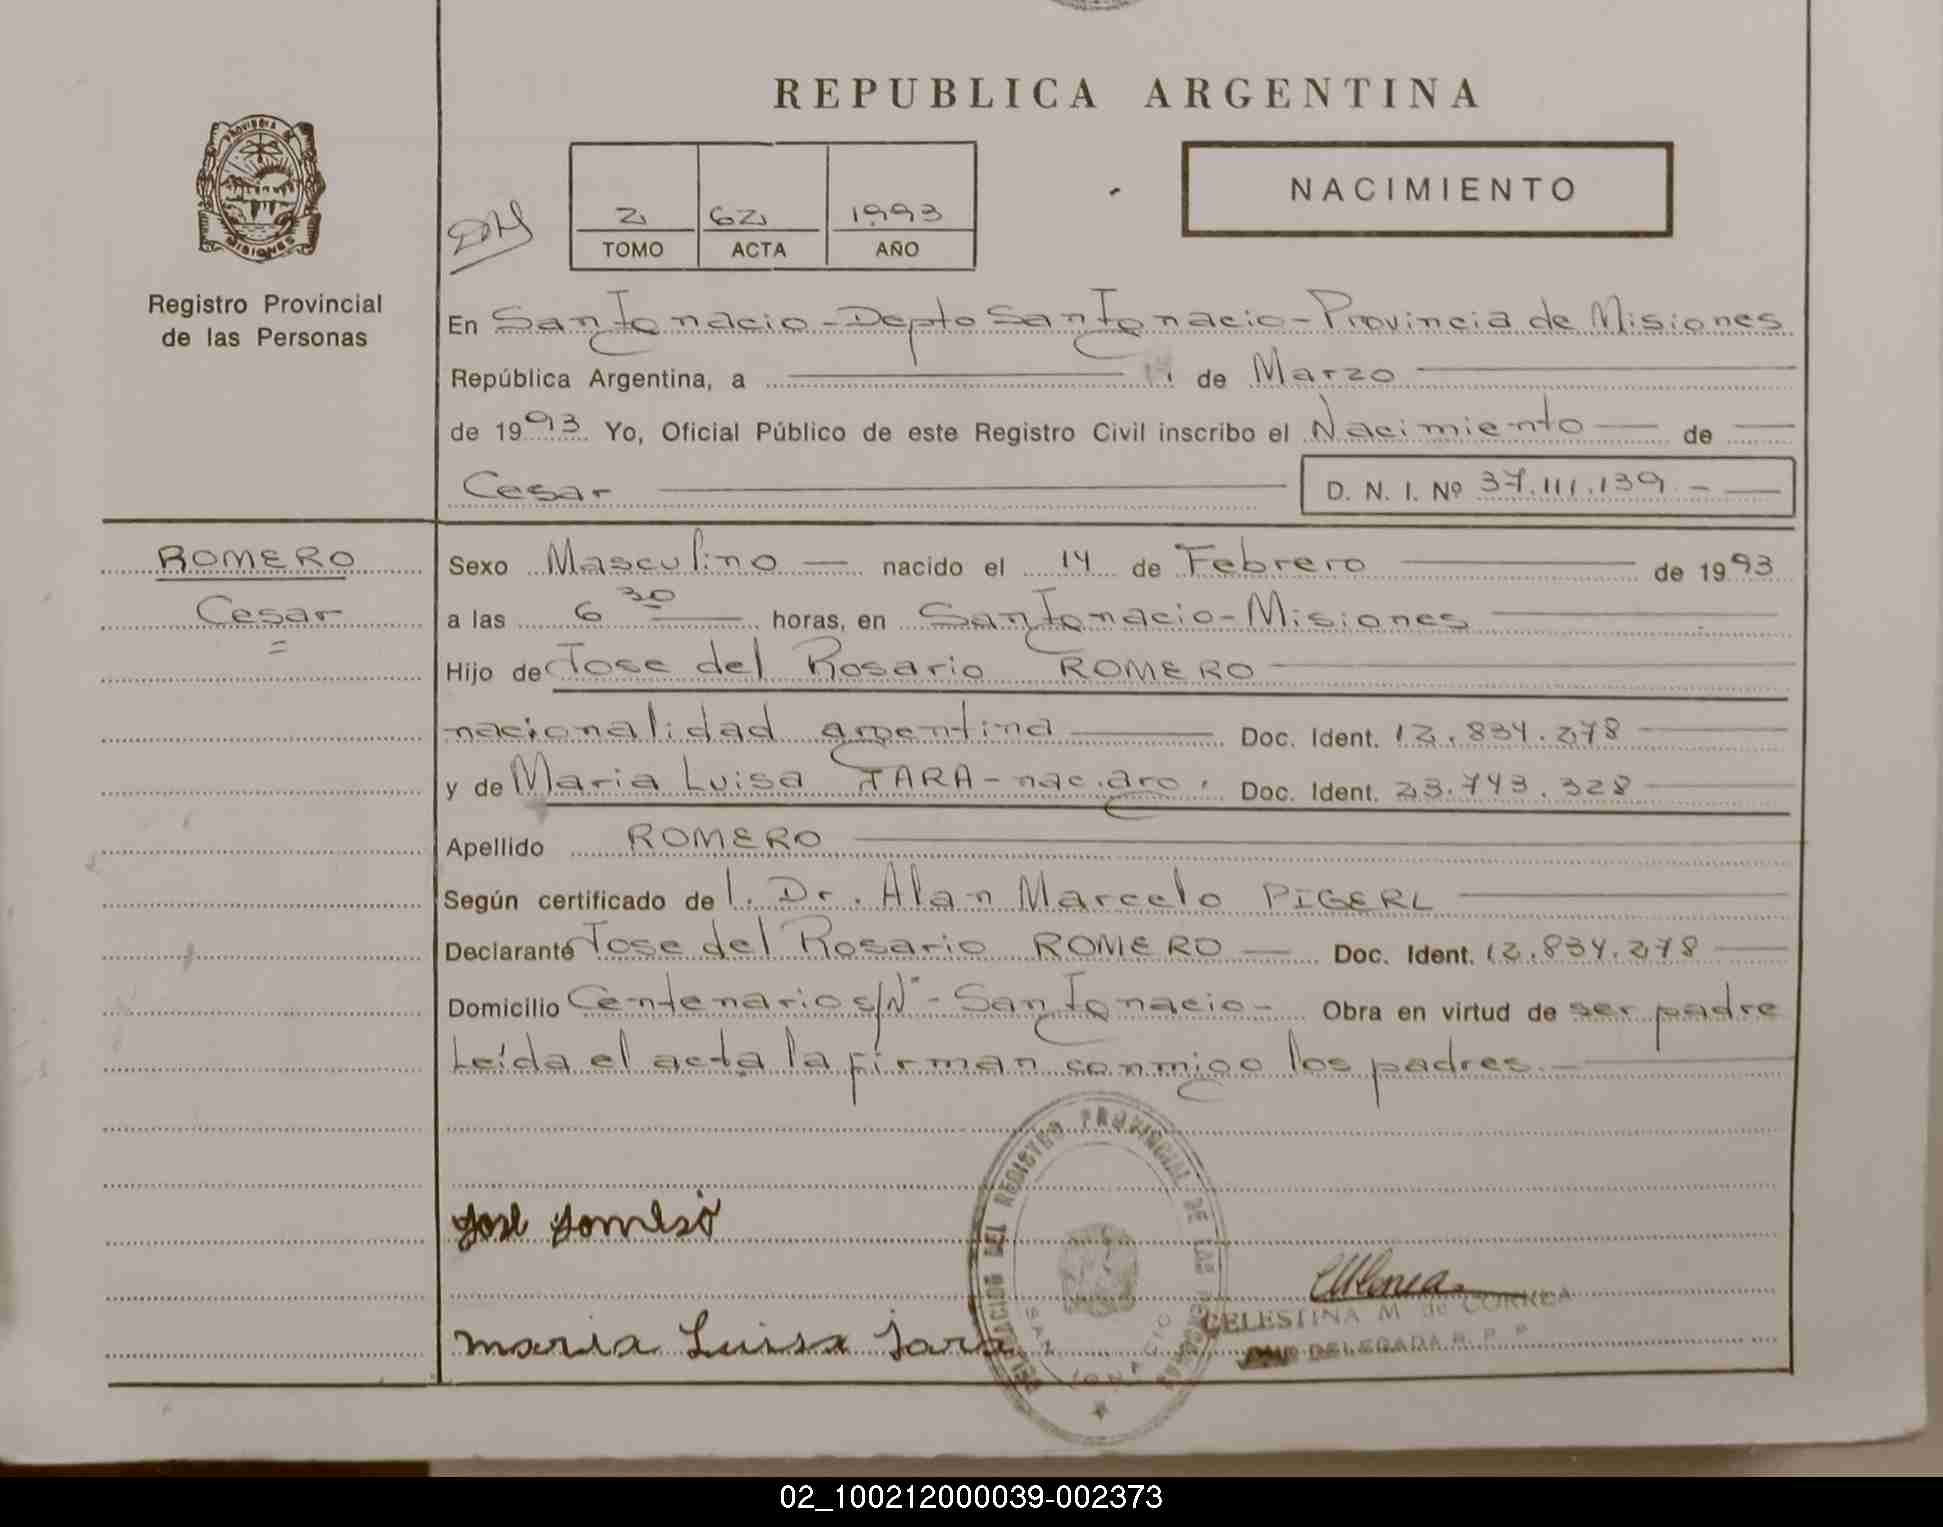 REPUBLICA ARGENTINA
PROVINCIA DE MISIONES
Registro Provincial
de las Personas
2 62 1993
TOMO ACTA AÑO
NACIMIENTO
En San Ignacio - Depto San Ignacio - Provincia de Misiones
República Argentina, a de Marzo
de 1993 Yo, Oficial Público de este Registro Civil inscribo el Nacimiento de
Cesar D. N. I. Nº 37.111.139 -
ROMERO
Cesar
Sexo Masculino nacido el 14 de Febrero de 1993
a las 6 30 horas, en San Ignacio - Misiones
Hijo de Jose del Rosario ROMERO
nacionalidad argentina Doc. Ident. 12.834.278
y de Maria Luisa JARA - nac. arg. Doc. Ident. 23.743.328
Apellido ROMERO
Según certificado de l. Dr. Alan Marcelo PIGERL
Declarante Jose del Rosario ROMERO Doc. Ident. 12.834.278
Domicilio Centenario s/Nº - San Ignacio - Obra en virtud de ser padre
Leída el acta la firman conmigo los padres. -
DELEGACION DEL REGISTRO PROVINCIAL DE LAS PERSONAS
SAN IGNACIO
Jose Romero
Maria Luisa Jara
CELESTINA M de CORREA
DELEGADA R. P. P.
02_100212000039-002373